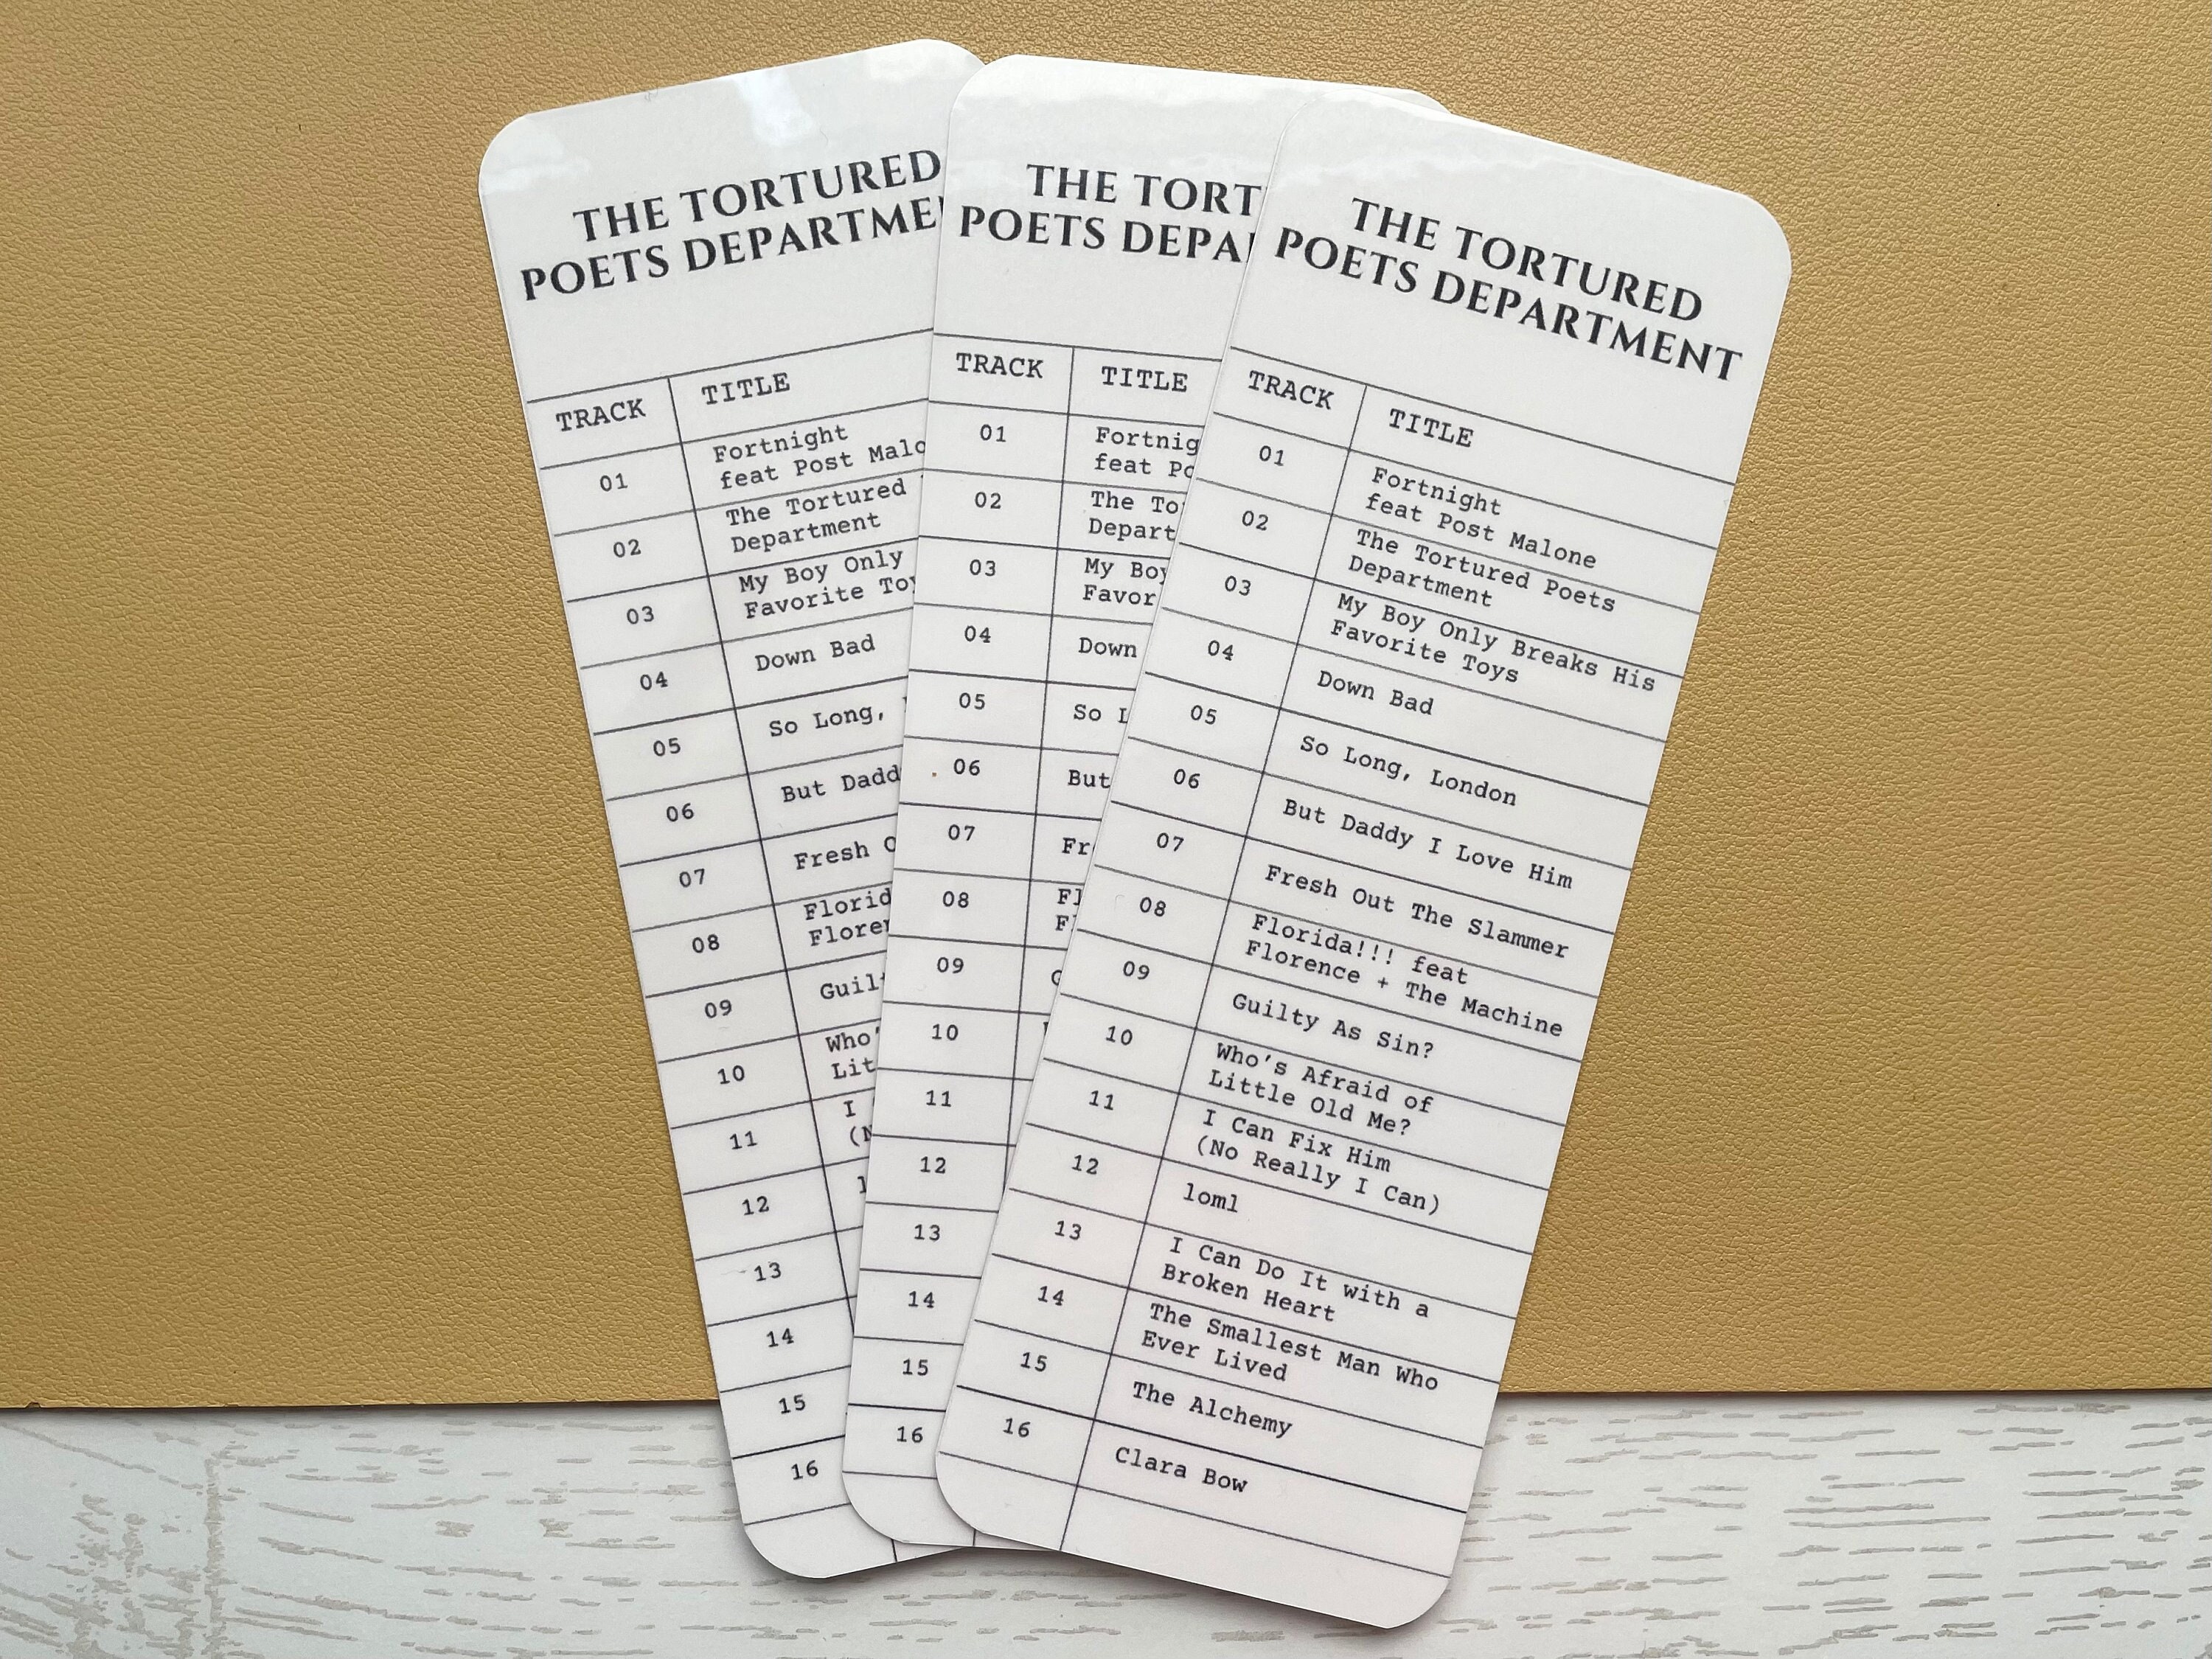 THE TORTURED
POETS
TRACK TITLE
01 Fortnight
feat Post
02 The Tortured
Department
03 My Boy Only
Favorite
04 Down Bad
05 So Long,
06 But
07 Fresh
08
09
10
11 I
12
13
14
15
16
THE
POETS
TRACK TITLE
01
feat
02 The
03 My
04 Down
05 So
06 But
07
08
09
10
11
12
13
14
15
16
THE TORTURED
POETS DEPARTMENT
TRACK TITLE
01 Fortnight
feat Post Malone
02 The Tortured Poets
Department
03 My Boy Only Breaks His
Favorite Toys
04 Down Bad
05 So Long, London
06 But Daddy I Love Him
07 Fresh Out The Slammer
08 Florida!!! feat
Florence + The Machine
09 Guilty As Sin?
10 Who's Afraid of
Little Old Me?
11 I Can Fix Him
(No Really I Can)
12 loml
13 I Can Do It with a
Broken Heart
14 The Smallest Man Who
Ever Lived
15 The Alchemy
16 Clara Bow